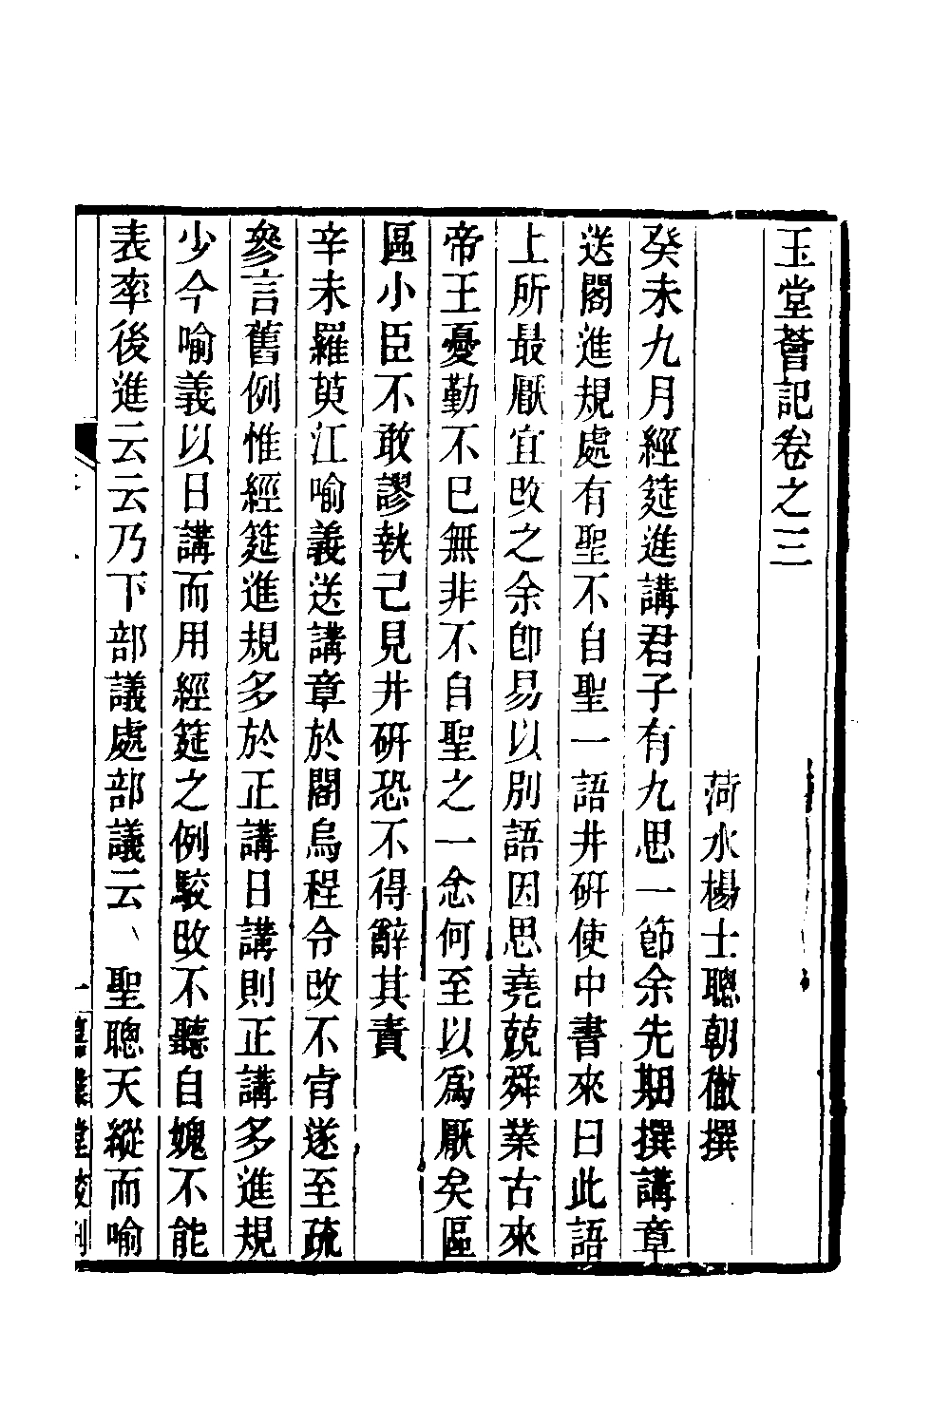 玉堂薈記卷之三
菏水楊士聰朝徹撰
癸未九月經筵進講君子有九思一節余先期撰講章
送閣進規處有聖不自聖一語井研使中書來曰此語
上所最厭宜改之余卽易以別語因思堯兢舜業古來
帝王憂勤不已無非不自聖之一念何至以爲厭矣區
區小臣不敢謬執己見井硏恐不得辭其責
辛未羅萸江喻義送講章於閣烏程令改不肯遂至疏
參言舊例惟經筵進規多於正講日講則正講多進規
少今喻義以日講而用經筵之例駮改不聽自媿不能
表率後進云云乃下部議處部議云、聖聰天縱而喻